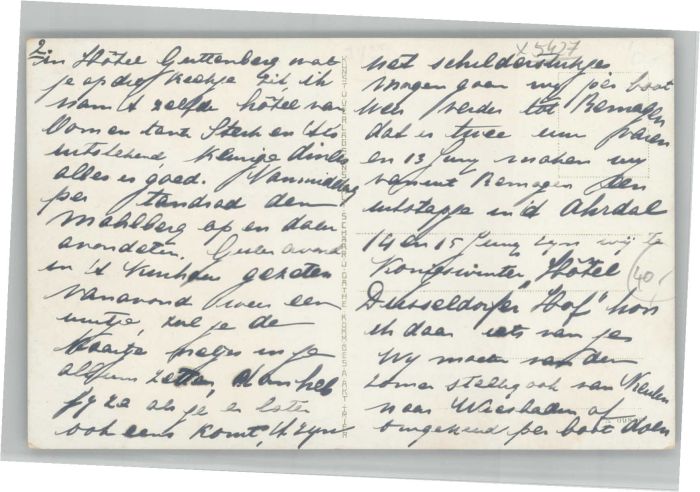 2.
in Hôtel Guttenberg wat
je op dit kiekje zit ik
nam 't zelfde hôtel van
Oom en tante Sterk en 't is
uitstekend, keurige dinees
alles is goed. Vanmiddag
per tandrad den
Mahlberg op en daar
avondeten. Gisteren avond
in 't Kurhaus gezeten
Vanavond weer een
uurtje, zul je de
kaartje netjes in je
album zetten, dan heb
jij ze als je er later
ook eens komt, 't zijn
X 5427
net schilderstukjes
morgen gaan wij per boot
weer verder tot Remagen
dat is twee uur varen
en 13 Juny maken wij
vanuit Remagen een
uitstapje in 'd Ahrdal
14 en 15 Juny zyn wij te
Königswinter Hôtel
Düsseldorfer Hof' hoor
ik daar iets van je
Wij moeten van den
zomer stellig ook van Keulen
naar Wiesbaden of
omgekeerd per boot doen
40,
KUNSTVERLAG SCHAAR & DATHE KOMM.GES.A.AKT. TRIER